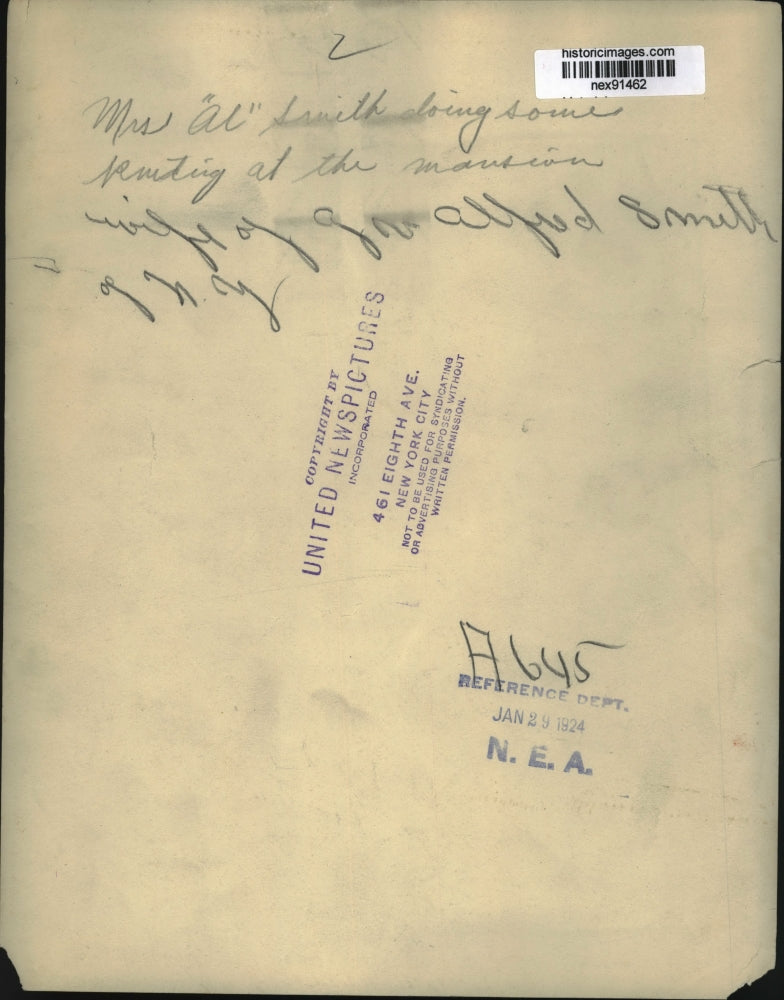 2
historicimages.com
nex91462
Mrs "Al" Smith doing some
knitting at the mansion
wife of Gov Alfred Smith
of N.Y
COPYRIGHT BY
UNITED NEWSPICTURES
INCORPORATED
461 EIGHTH AVE.
NEW YORK CITY
NOT TO BE USED FOR SYNDICATING
OR ADVERTISING PURPOSES WITHOUT
WRITTEN PERMISSION.
A645
REFERENCE DEPT.
JAN 29 1924
N. E. A.